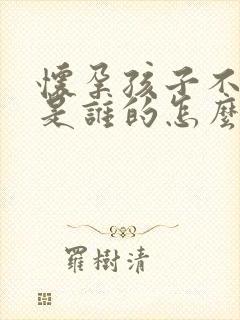 懷孕孩子不
是誰的怎麼
羅樹清